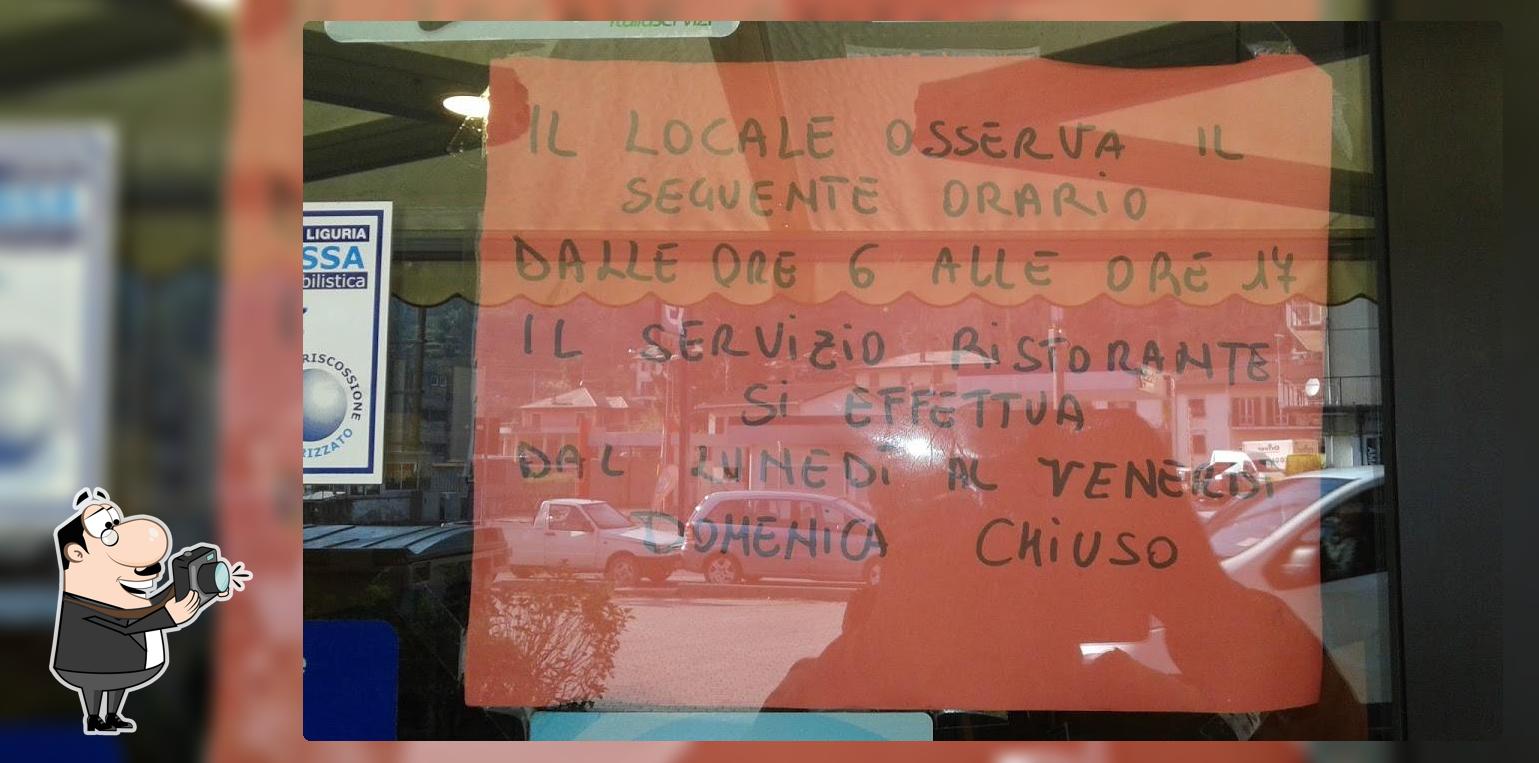 italiaservizi
IL LOCALE OSSERVA IL
SEGUENTE ORARIO
DALLE ORE 6 ALLE ORE 17
IL SERVIZIO RISTORANTE
SI EFFETTUA
DAL LUNEDÌ AL VENERDÌ
DOMENICA CHIUSO
LIGURIA
SSA
bilistica
RISCOSSIONE
RIZZATO